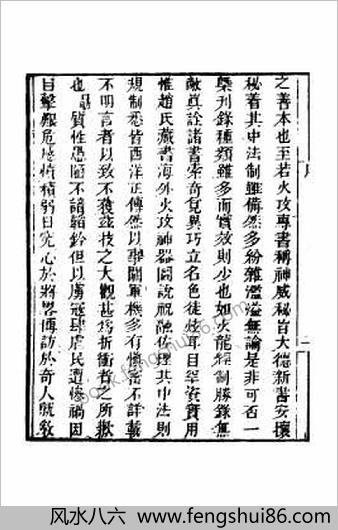 之善本也至若火攻專書稱神威秘旨大德新書安攘
秘著其中法制雖備然多紛雜濫溢無論是非可否一
槩刊錄種類雖多而實效則少也如火龍經制勝錄無
敵眞詮諸書索奇覓異巧立名色徒炫耳目罕資實用
惟趙氏藏書海外火攻神器圖說祝融佐理其中法則
規制悉皆西洋正傳然以事關軍機多有愼密不詳載
不明言者以致不獲茲技之大觀甚爲折衝者之所歉
也勗質性愚陋不諳韜鈐但以虜寇肆虐民遭慘禍因
目擊艱危感憤積弱日究心於將畧博訪於奇人就敎
www.fengshui86.com
风水八六－www.fengshui86.com